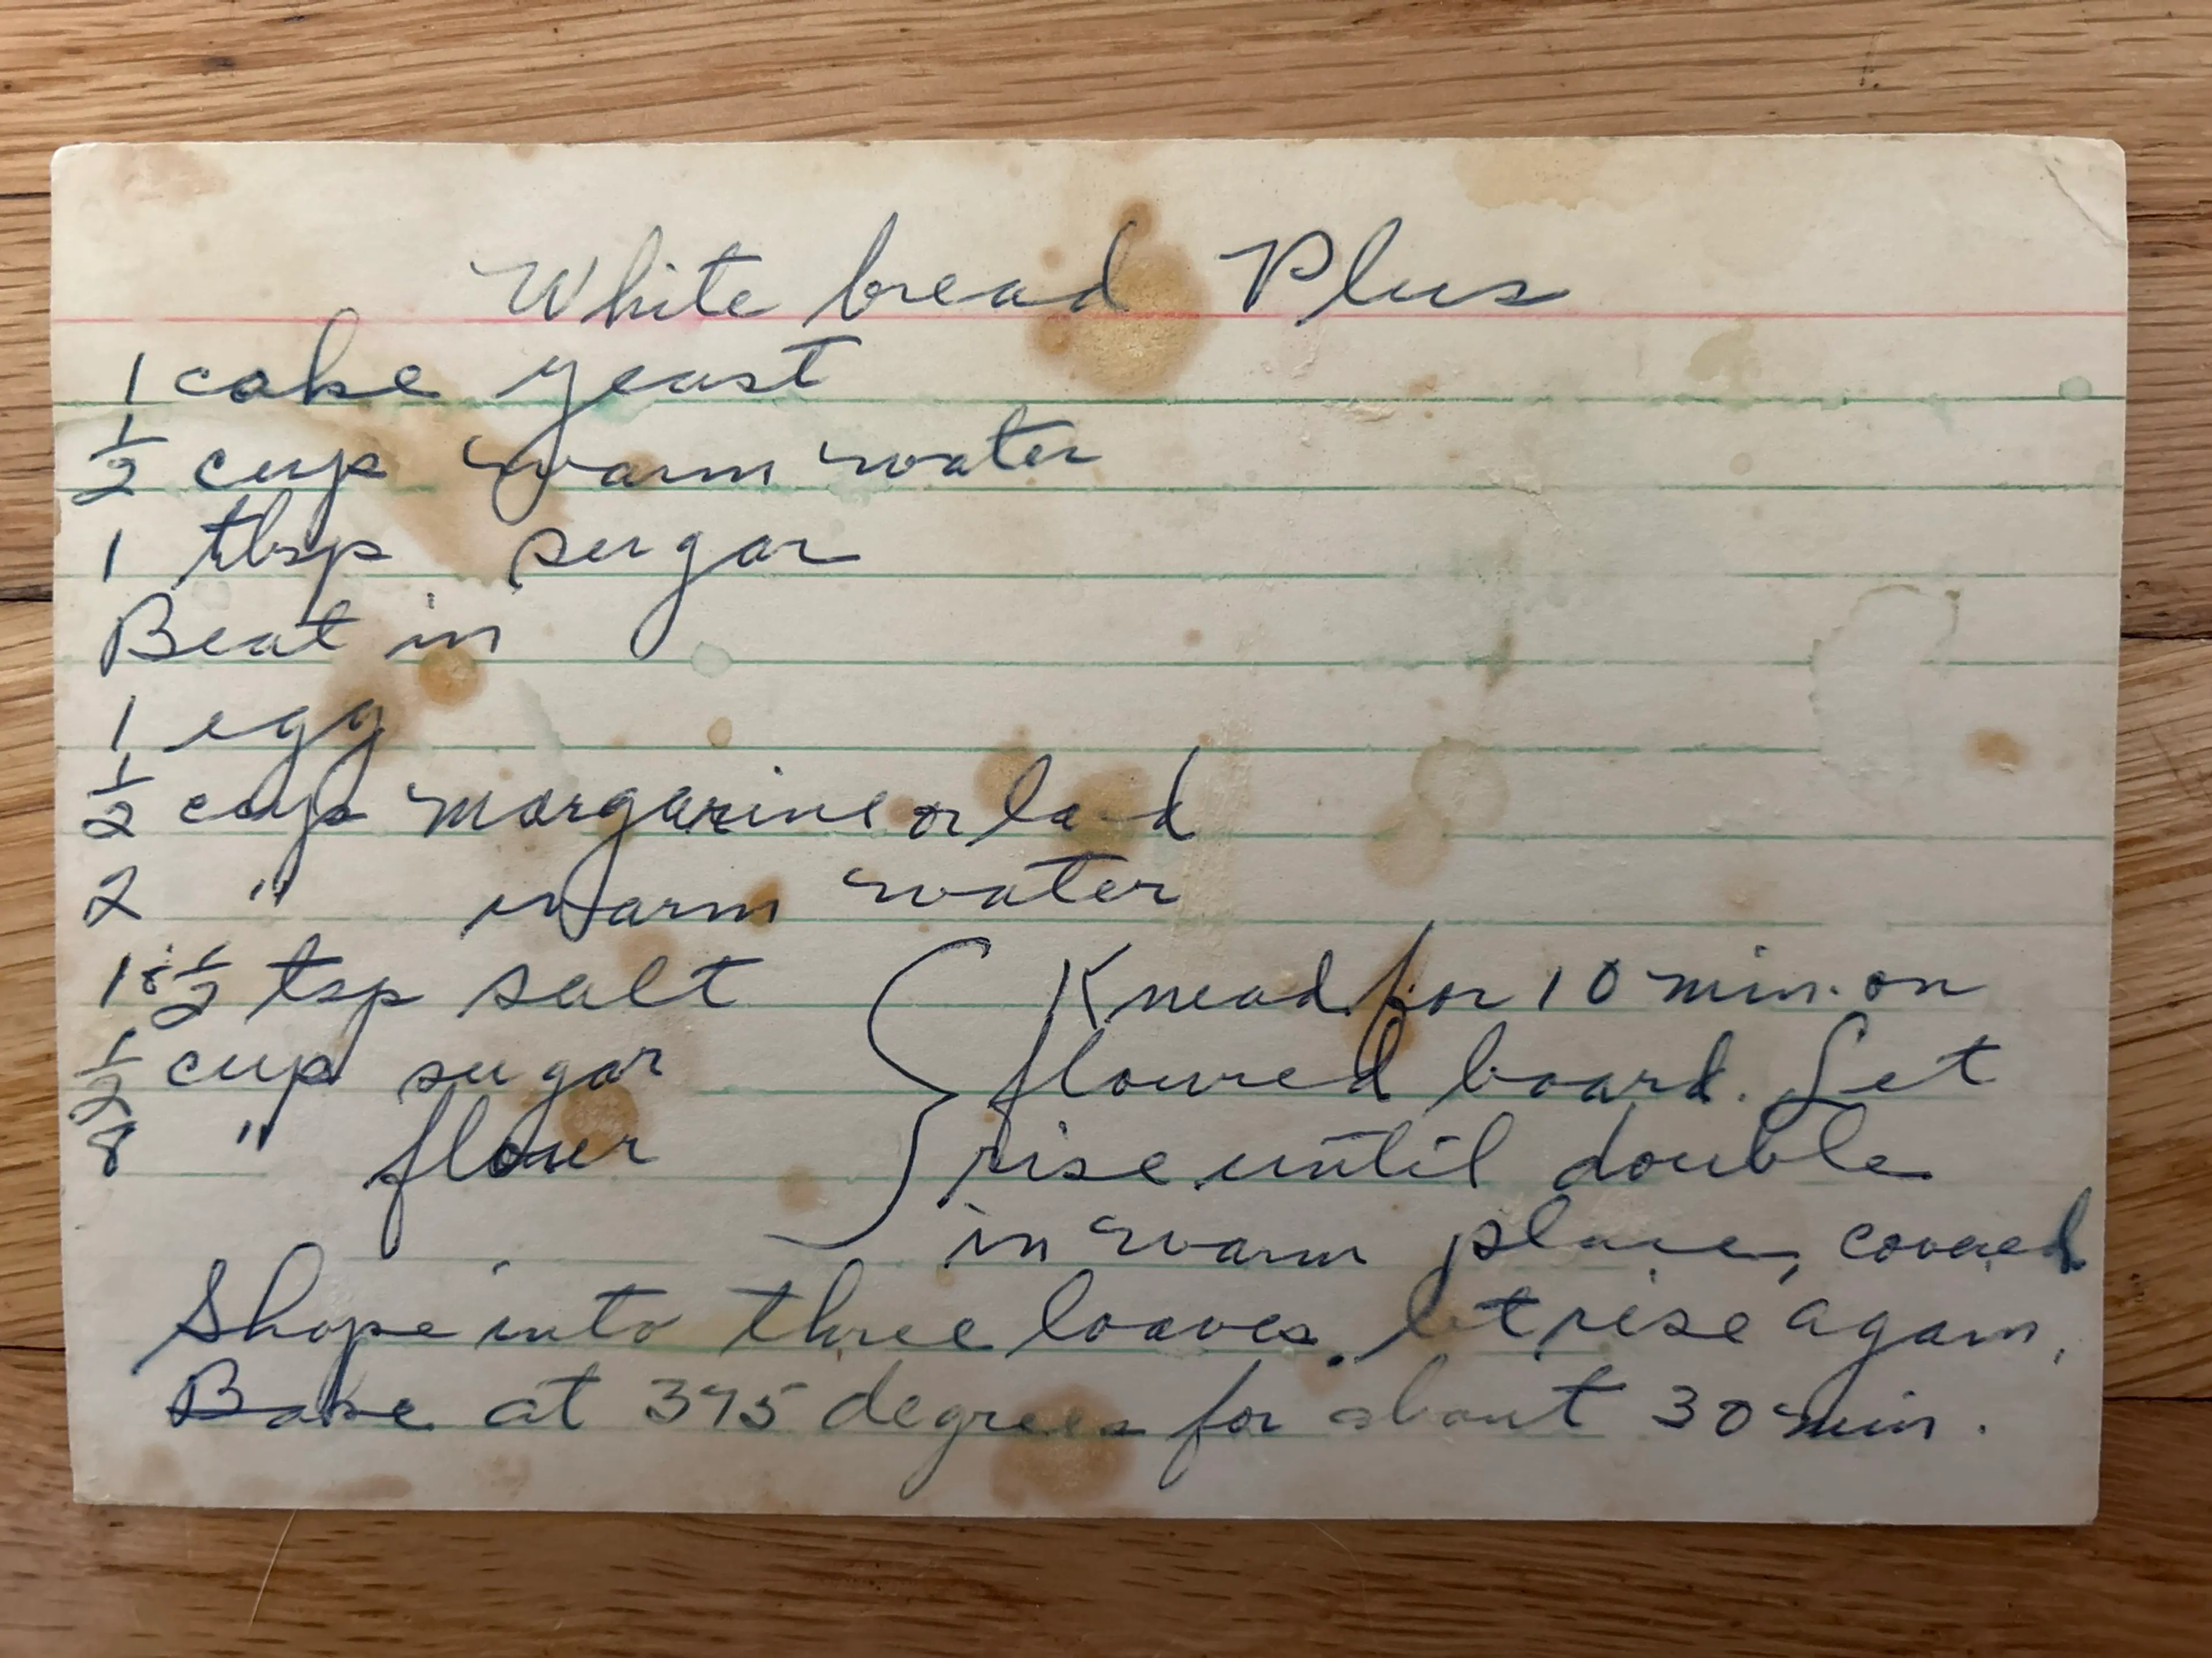 White bread Plus
1 cake yeast
1/2 cup warm water
1 tbsp sugar
Beat in
1 egg
1/2 cup margarine or lard
2 " warm water
1 & 1/2 tsp salt
1/2 cup sugar
8 " flour
Knead for 10 min. on
floured board. Let
rise until double
in warm place, covered
Shape into three loaves. let rise again.
Bake at 375 degrees for about 30 min.